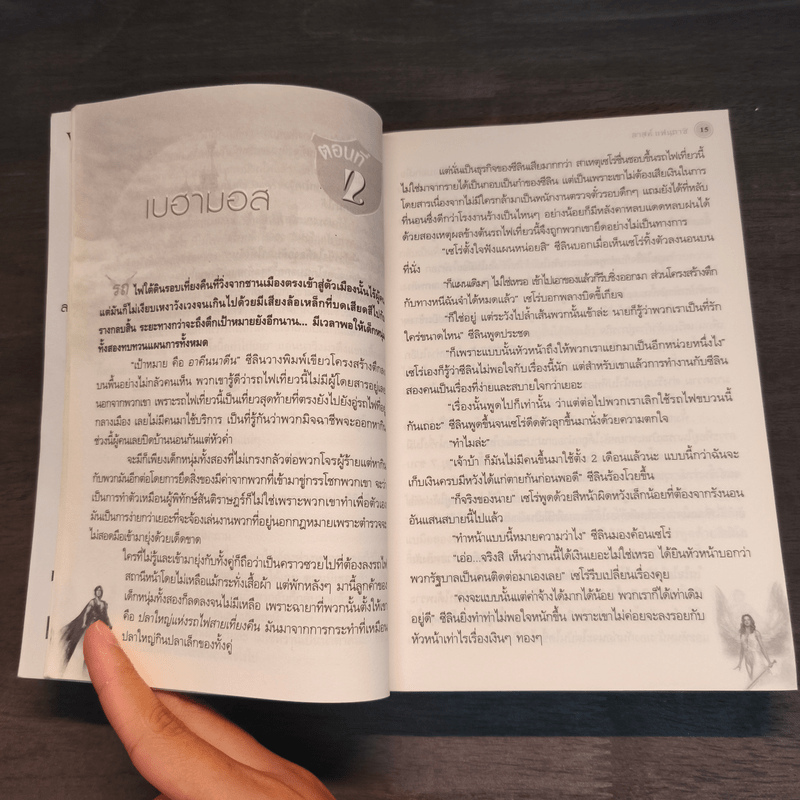 ตอนที่
2
เบฮามอส
รถไฟใต้ดินรอบเที่ยงคืนที่วิ่งจากชานเมืองตรงเข้าสู่ตัวเมืองนั้นไร้ผู้คน
แต่มันก็ไม่เงียบเหงาวังเวงจนเกินไปด้วยมีเสียงล้อเหล็กที่บดเสียดสีไปกับ
รางกลบสิ้น ระยะทางกว่าจะถึงตึกเป้าหมายยังอีกนาน... มีเวลาพอให้เด็กหนุ่ม
ทั้งสองทบทวนแผนการทั้งหมด
“เป้าหมาย คือ อาคีนนาดีน” ซีลินวางพิมพ์เขียวโครงสร้างตึกลง
บนพื้นอย่างไม่กลัวคนเห็น พวกเขารู้ดีว่ารถไฟเที่ยวนี้ไม่มีผู้โดยสารอยู่เลย
นอกจากพวกเขา เพราะรถไฟเที่ยวนี้เป็นเที่ยวสุดท้ายที่ตรงยังไปยังอู่รถไฟที่อยู่
กลางเมือง เลยไม่มีคนมาใช้บริการ เป็นที่รู้กันว่าพวกมิจฉาชีพจะออกหากิน
ช่วงนี้ผู้คนเลยปิดบ้านนอนกันแต่หัวค่ำ
จะมีก็เพียงเด็กหนุ่มทั้งสองที่ไม่เกรงกลัวต่อพวกโจรผู้ร้ายแต่หากิน
กับพวกมันอีกต่อโดยการยึดสิ่งของมีค่าจากพวกที่เข้ามาขู่กรรโชกพวกเขา จะว่า
เป็นการทำตัวเหมือนผู้พิทักษ์สันติราษฎร์ก็ไม่ใช่เพราะพวกเขาทำเพื่อตัวเอง
มันเป็นการง่ายกว่าเยอะที่จะจ้องเล่นงานพวกที่อยู่นอกกฎหมายเพราะตำรวจจะ
ไม่สอดมือเข้ามายุ่งด้วยเด็ดขาด
ใครที่ไม่รู้และเข้ามายุ่งกับทั้งคู่ก็ถือว่าเป็นคราวซวยไปที่ต้องลงรถไฟ
สถานีหน้าโดยไม่เหลือแม้กระทั่งเสื้อผ้า แต่พักหลังๆ มานี้ลูกค้าของ
เด็กหนุ่มทั้งสองก็ลดลงจนไม่มีเหลือ เพราะฉายาที่พวกนั้นตั้งให้เขา
คือ ปลาใหญ่แห่งรถไฟสายเที่ยงคืน มันมาจากการกระทำที่เหมือน
ปลาใหญ่กินปลาเล็กของทั้งคู่
15
แต่นั่นเป็นธุรกิจของซีลินเสียมากกว่า สาเหตุเซโร่ชื่นชอบขึ้นรถไฟเที่ยวนี้
ไม่ใช่มาจากรายได้เป็นกอบเป็นกำของซีลิน แต่เป็นเพราะเขาไม่ต้องเสียเงินในการ
โดยสารเนื่องจากไม่มีใครกล้ามาเป็นพนักงานตรวจตั๋วรอบดึกๆ แถมยังได้ที่หลับ
ที่นอนซึ่งดีกว่าโรงงานร้างเป็นไหนๆ อย่างน้อยก็มีหลังคาหลบแดดหลบฝนได้
ด้วยสองเหตุผลข้างต้นรถไฟเที่ยวนี้จึงถูกพวกเขายึดอย่างไม่เป็นทางการ
“เซโร่ตั้งใจฟังแผนหน่อยสิ” ซีลินบอกเมื่อเห็นเซโร่ทิ้งตัวลงนอนบน
ที่นั่ง
“ก็แผนเดิมๆ ไม่ใช่เหรอ เข้าไปเอาของแล้วก็รีบซิ่งออกมา ส่วนโครงสร้างตึก
กับทางหนีฉันจำได้หมดแล้ว” เซโร่บอกพลางบิดขี้เกียจ
“ก็ใช่อยู่ แต่ระวังไปลำเส้นพวกนั้นเข้าล่ะ นายก็รู้ว่าพวกเราเป็นที่รัก
ใคร่ขนาดไหน” ซีลินพูดประชด
“ก็เพราะแบบนั้นหัวหน้าถึงให้พวกเราแยกมาเป็นอีกหน่วยหนึ่งไง”
เซโร่เองก็รู้ว่าซีลินไม่พอใจกับเรื่องนี้นัก แต่สำหรับเขาแล้วการทำงานกับซีลิน
สองคนเป็นเรื่องที่ง่ายและสบายใจกว่าเยอะ
“เรื่องนั้นพูดไปก็เท่านั้น ว่าแต่ต่อไปพวกเราเลิกใช้รถไฟขบวนนี้
กันเถอะ” ซีลินพูดขึ้นจนเซโร่ดีดตัวลุกขึ้นมานั่งด้วยความตกใจ
“ทำไมล่ะ”
“เจ้าบ้า ก็มันไม่มีคนขึ้นมาใช้ตั้ง 2 เดือนแล้วนะ แบบนี้กว่าฉันจะ
เก็บเงินครบมีหวังได้แก่ตายกันก่อนพอดี” ซีลินร้องโวยขึ้น
“ก็จริงของนาย” เซโร่พูดด้วยสีหน้าผิดหวังเล็กน้อยที่ต้องจากรังนอน
อันแสนสบายนี้ไปแล้ว
“ทำหน้าแบบนี้หมายความว่าไง” ซีลินมองค้อนเซโร่
“เอ่อ...จริงสิ เห็นว่างานนี้ได้เงินเยอะไม่ใช่เหรอ ได้ยินหัวหน้าบอกว่า
พวกรัฐบาลเป็นคนติดต่อมาเองเลย” เซโร่รีบเปลี่ยนเรื่องคุย
“คงจะแบบนั้นแต่ค่าจ้างได้มากได้น้อย พวกเราก็ได้เท่าเดิม
อยู่ดี” ซีลินยิ่งทำท่าไม่พอใจหนักขึ้น เพราะเขาไม่ค่อยจะลงรอยกับ
หัวหน้าเท่าไรเรื่องเงินๆ ทองๆ